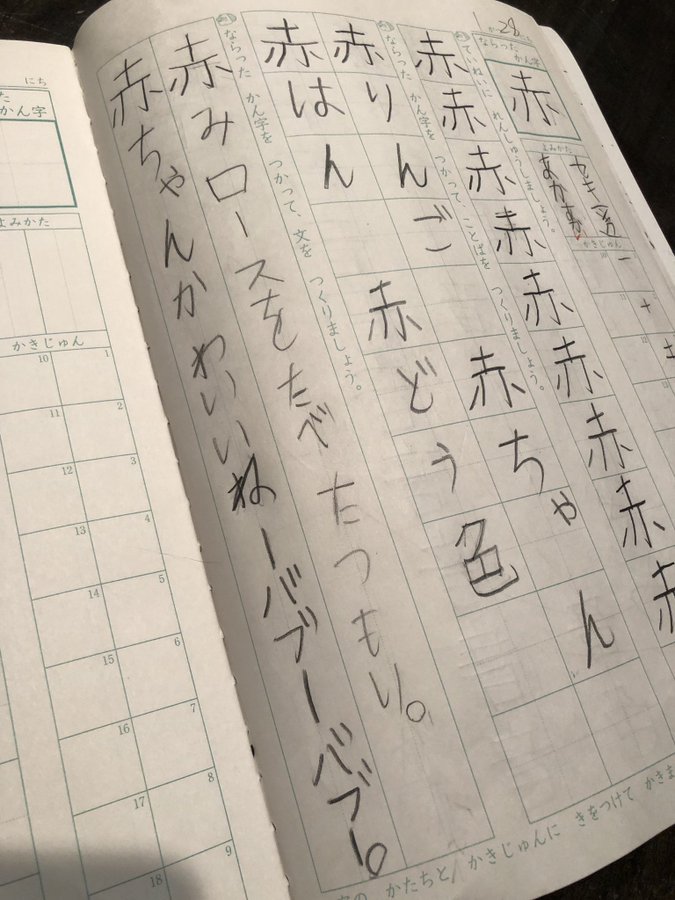 28
ならった かん字
赤
よみかた
セキ
かきじゅん
10 一
11 十
12 土
ていねいに れんしゅうしましょう。
赤赤赤赤赤赤赤赤赤
ならった かん字を つかって、ことばを つくりましょう。
赤りんご 赤ちゃん
赤はん 赤どう色
ならった かん字を つかって、文を つくりましょう。
赤みロースをたべたつもり。
赤ちゃんかわいいねーバブーバブー。
かたちと かきじゅんに きをつけて かきま
にち
かん字
よみかた
かきじゅん
1
2
3
4
5
6
7
8
9
10
11
12
13
14
15
16
17
18